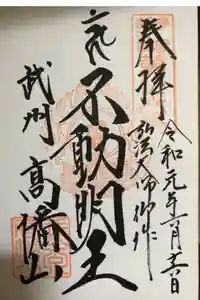 奉拝
令和元年六月廿六日
弘法大師御作
不動明王
武州
高幡山